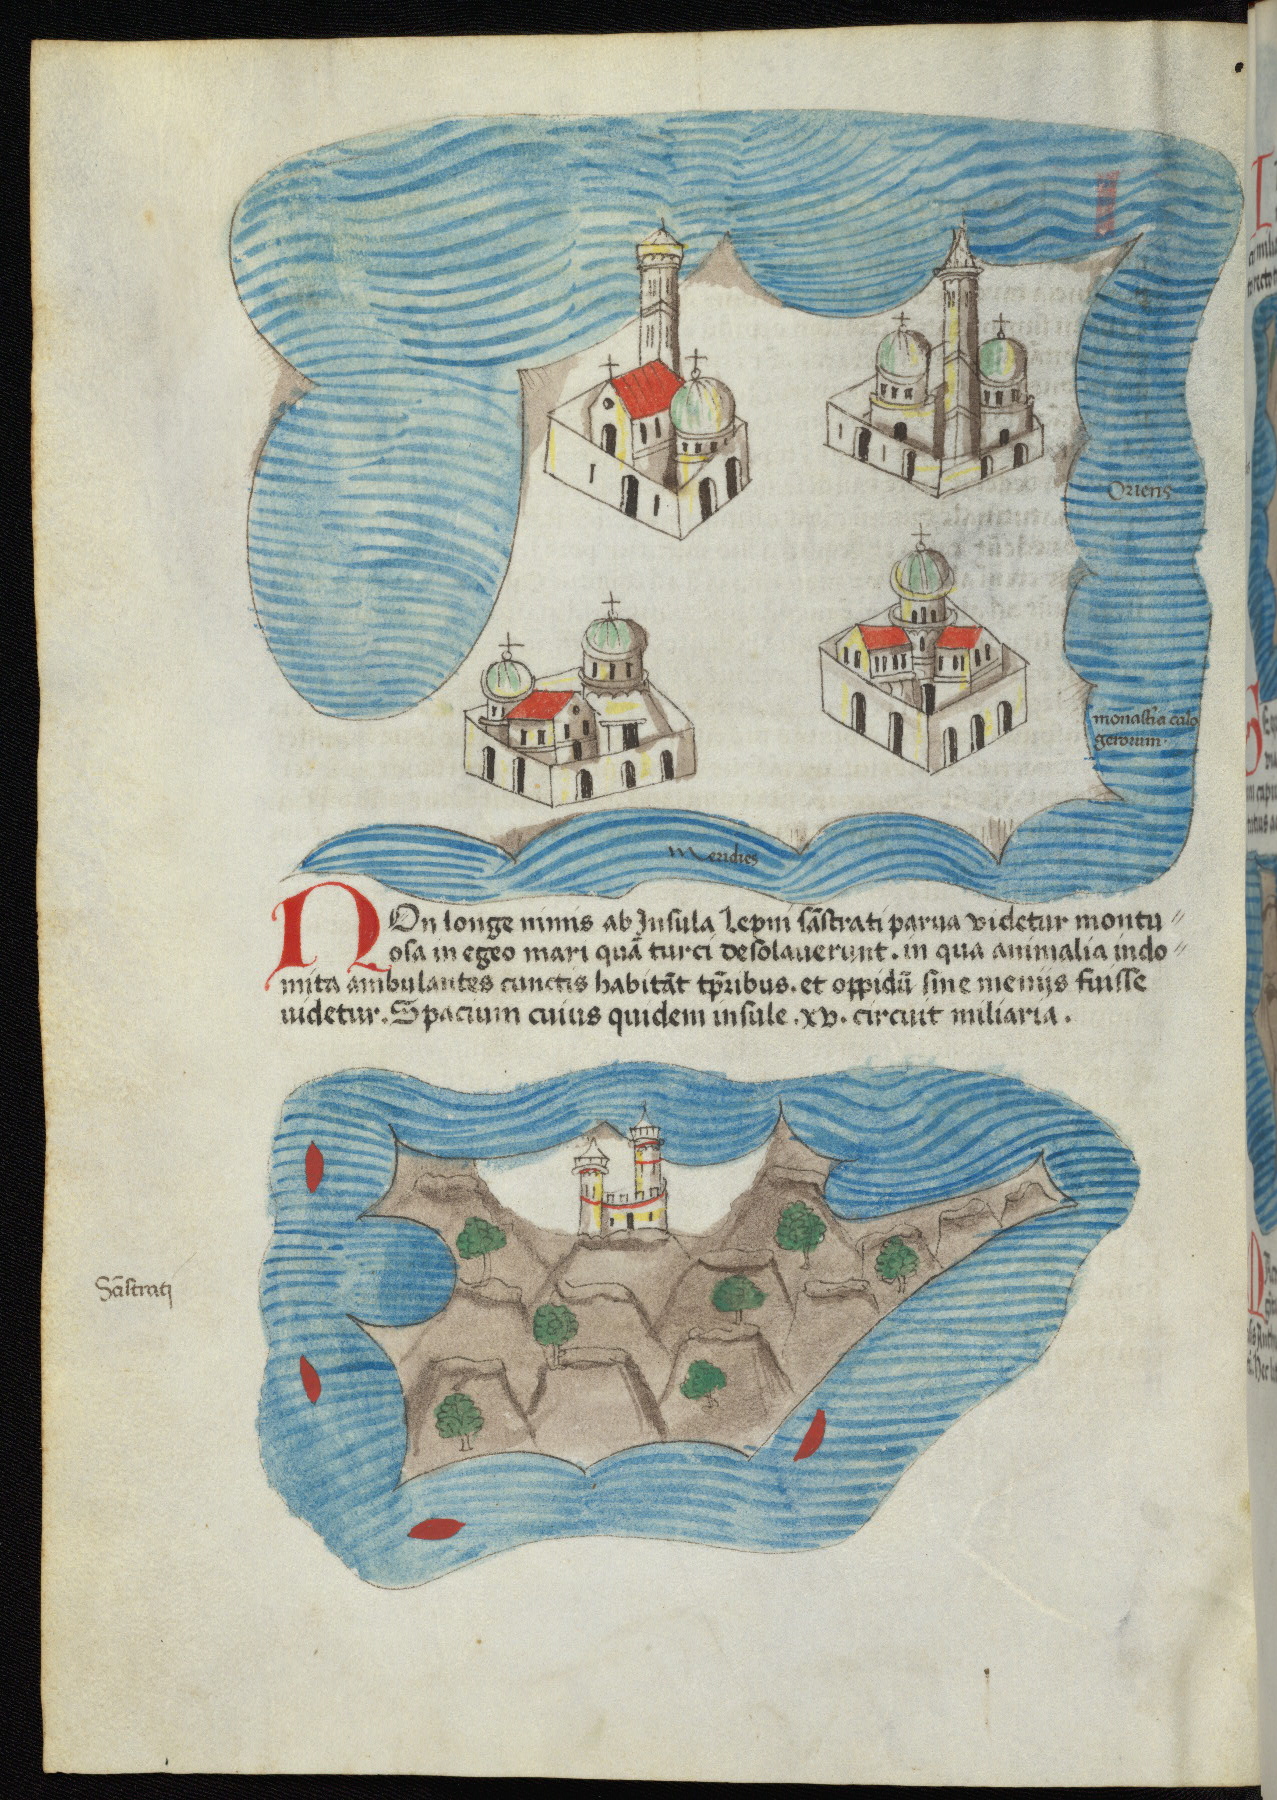 Oriens
monast̃ia calo
gerorum.
Meridies
NOn longe nimis ab Insula Lepni sãstrati parua videtur montu〃
osa in egeo mari quã turci desolauerunt. in qua animalia indo〃
mita ambulantes cunctis habitãt tp̃ribus. et oppidũ sine menijs fuisse
uidetur. Spacium cuius quidem insule .xv. circuit miliaria.
Sãstrati